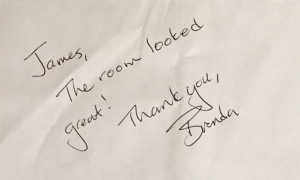 James,
The room looked
great!
Thank you,
Brenda